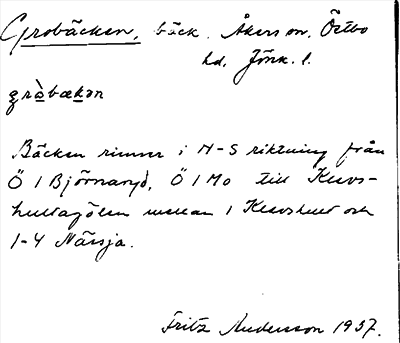 Grobäcken, bäck. Åkers sn. Östbo
hd. Jönk. l.
gròbækən
Bäcken rinner i N-S riktning från
Ö 1 Björnaryd, Ö 1 Mo till Klevs-
hultagölen mellan 1 Klevshult och
1-4 Närsja.
Fritz Andersson 1937.